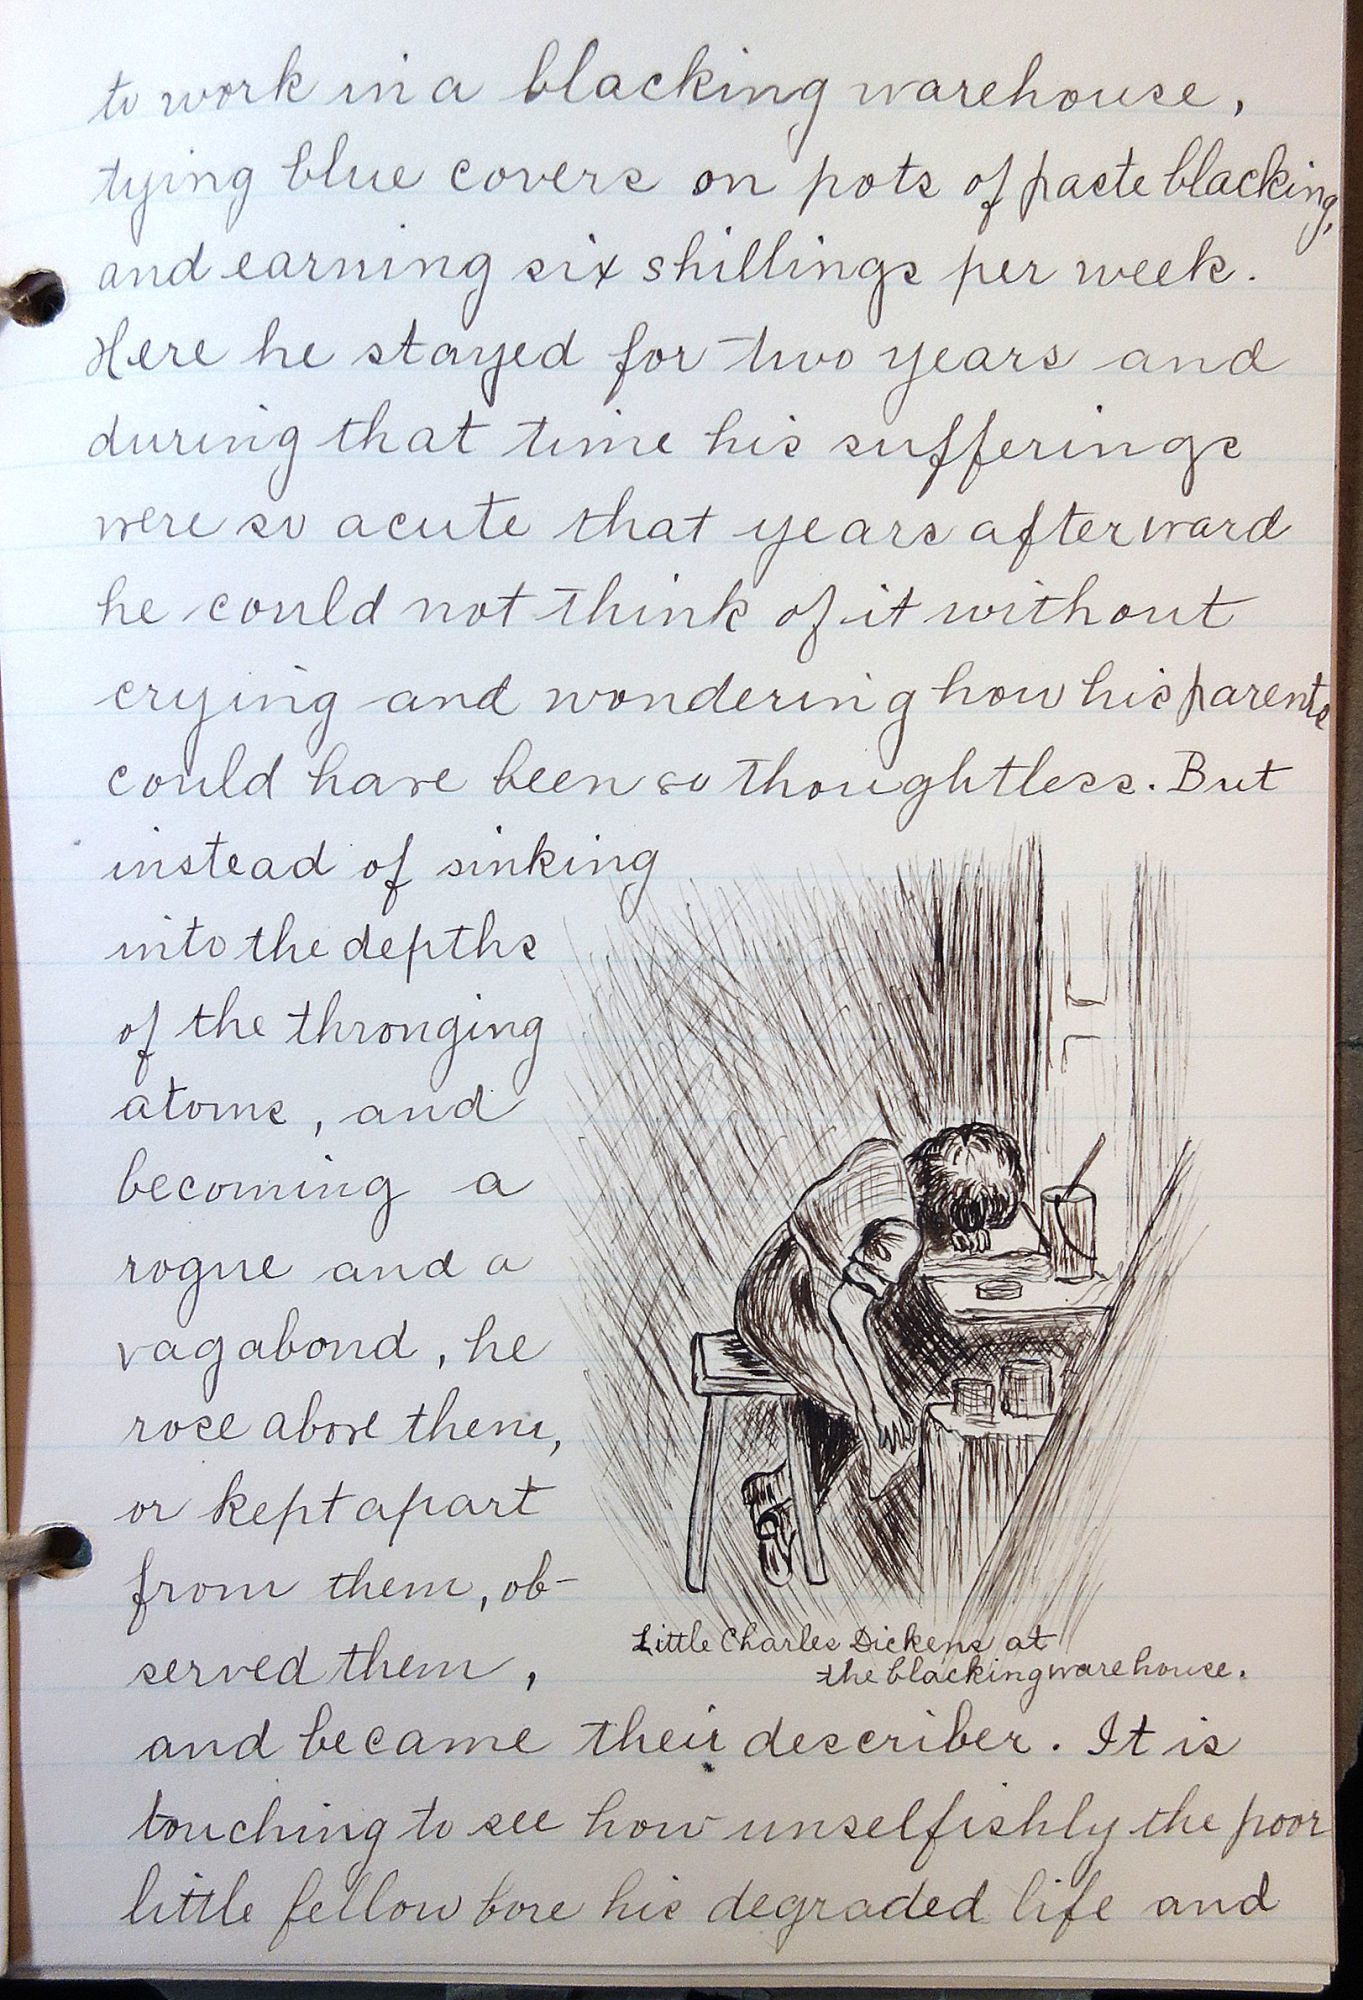 to work in a blacking warehouse,
tying blue covers on pots of paste blacking,
and earning six shillings per week.
Here he stayed for two years and
during that time his sufferings
were so acute that years afterward
he could not think of it without
crying and wondering how his parents
could have been so thoughtless. But
instead of sinking
into the depths
of the thronging
atoms, and
becoming a
rogue and a
vagabond, he
rose above them,
or kept apart
from them, ob-
served them,
Little Charles Dickens at
the blacking warehouse.
and became their describer. It is
touching to see how unselfishly the poor
little fellow bore his degraded life and